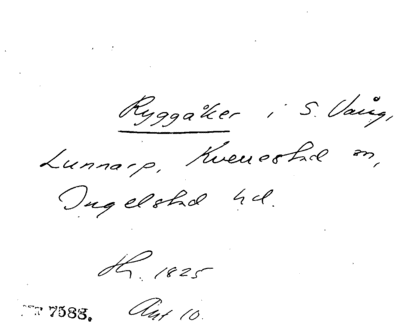 Ryggåker i S. Vång,
Lunnarp, Kverrestad sn,
Ingelstad hd.
Hs. 1825
7588. Avt 10.